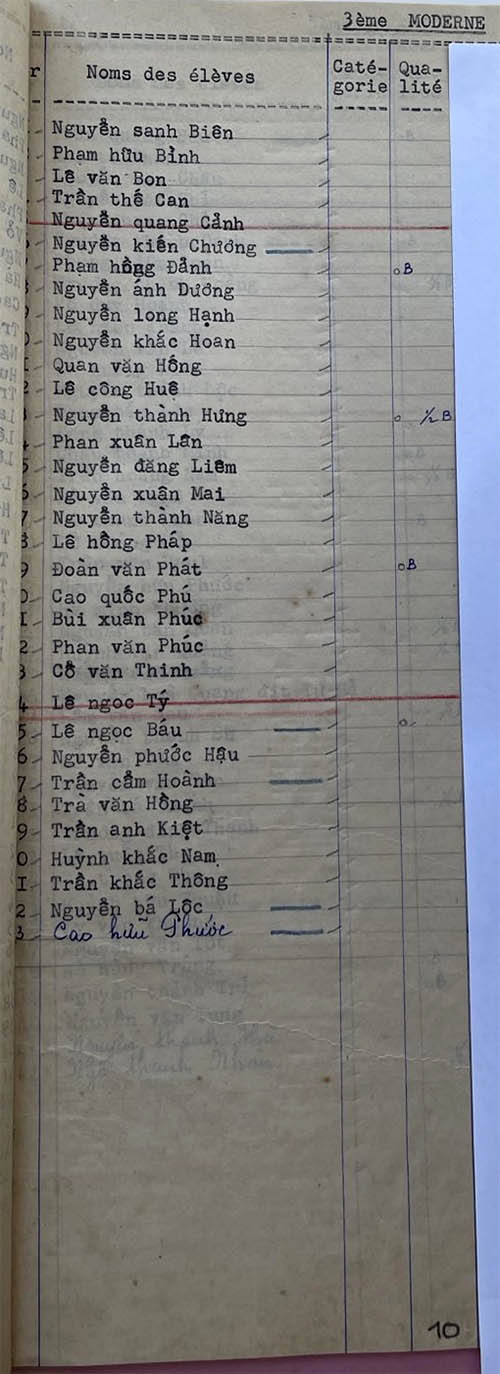 3ème MODERNE
r Noms des élèves Caté- Qua-
gorie lité
Nguyễn sanh Biên
Phạm hữu Bỉnh
Lê văn Bon
Trần thế Can
Nguyễn quang Cảnh
Nguyễn kiến Chương
Phạm hồng Đảnh B
Nguyễn ánh Dương
9 Nguyễn long Hạnh
0 Nguyễn khắc Hoan
I Quan văn Hồng
2 Lê công Huệ
3 Nguyễn thành Hưng ½ B
4 Phan xuân Lân
5 Nguyễn đăng Liêm
6 Nguyễn xuân Mai
7 Nguyễn thành Năng
8 Lê hồng Pháp
9 Đoàn văn Phát B
0 Cao quốc Phú
I Bùi xuân Phúc
2 Phan văn Phúc
3 Cỗ văn Thinh
4 Lê ngọc Tý
5 Lê ngọc Báu
6 Nguyễn phước Hậu
7 Trần cẩm Hoành
8 Trà văn Hồng
9 Trần anh Kiệt
0 Huỳnh khắc Nam
I Trần khắc Thông
2 Nguyễn bá Lộc
3 Cao hữu Phước
10